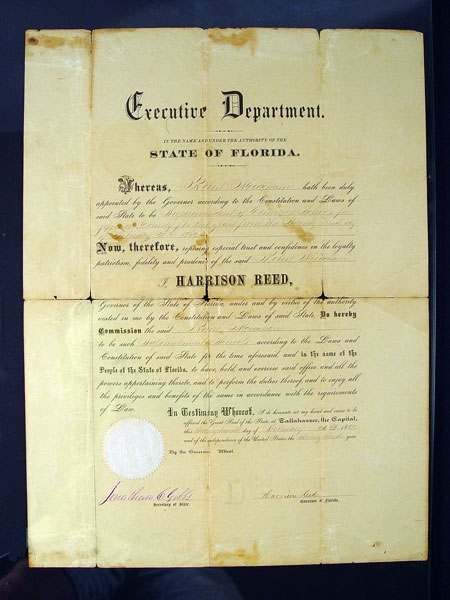 Executive Department.
IN THE NAME AND UNDER THE AUTHORITY OF THE
STATE OF FLORIDA.
Whereas, Robert Meacham hath been duly
appointed by the Governor according to the Constitution and Laws of
said State to be Superintendent of Common Schools for
Now, therefore, reposing especial trust and confidence in the loyalty
patriotism, fidelity and prudence of the said Robert Meacham
I, HARRISON REED,
Governor of the State of Florida, under and by virtue of the authority
vested in me by the Constitution and Laws of said State, Do hereby
Commission the said Robert Meacham
to be such Superintendent of Schools according to the Laws and
Constitution of said State for the time aforesaid, and in the name of the
People of the State of Florida, to have, hold, and exercise said office and all the
powers appertaining thereto, and to perform the duties thereof, and to enjoy all
the privileges and benefits of the same in accordance with the requirements
of Law.
In Testimony Whereof, I do hereunto set my hand and cause to be
affixed the Great Seal of the State, at Tallahassee, the Capital,
this day of
and of the independence of the United States the year
By the Governor Attest.
Jonathan C. Gibbs
Secretary of State.
Harrison Reed
Governor of Florida.